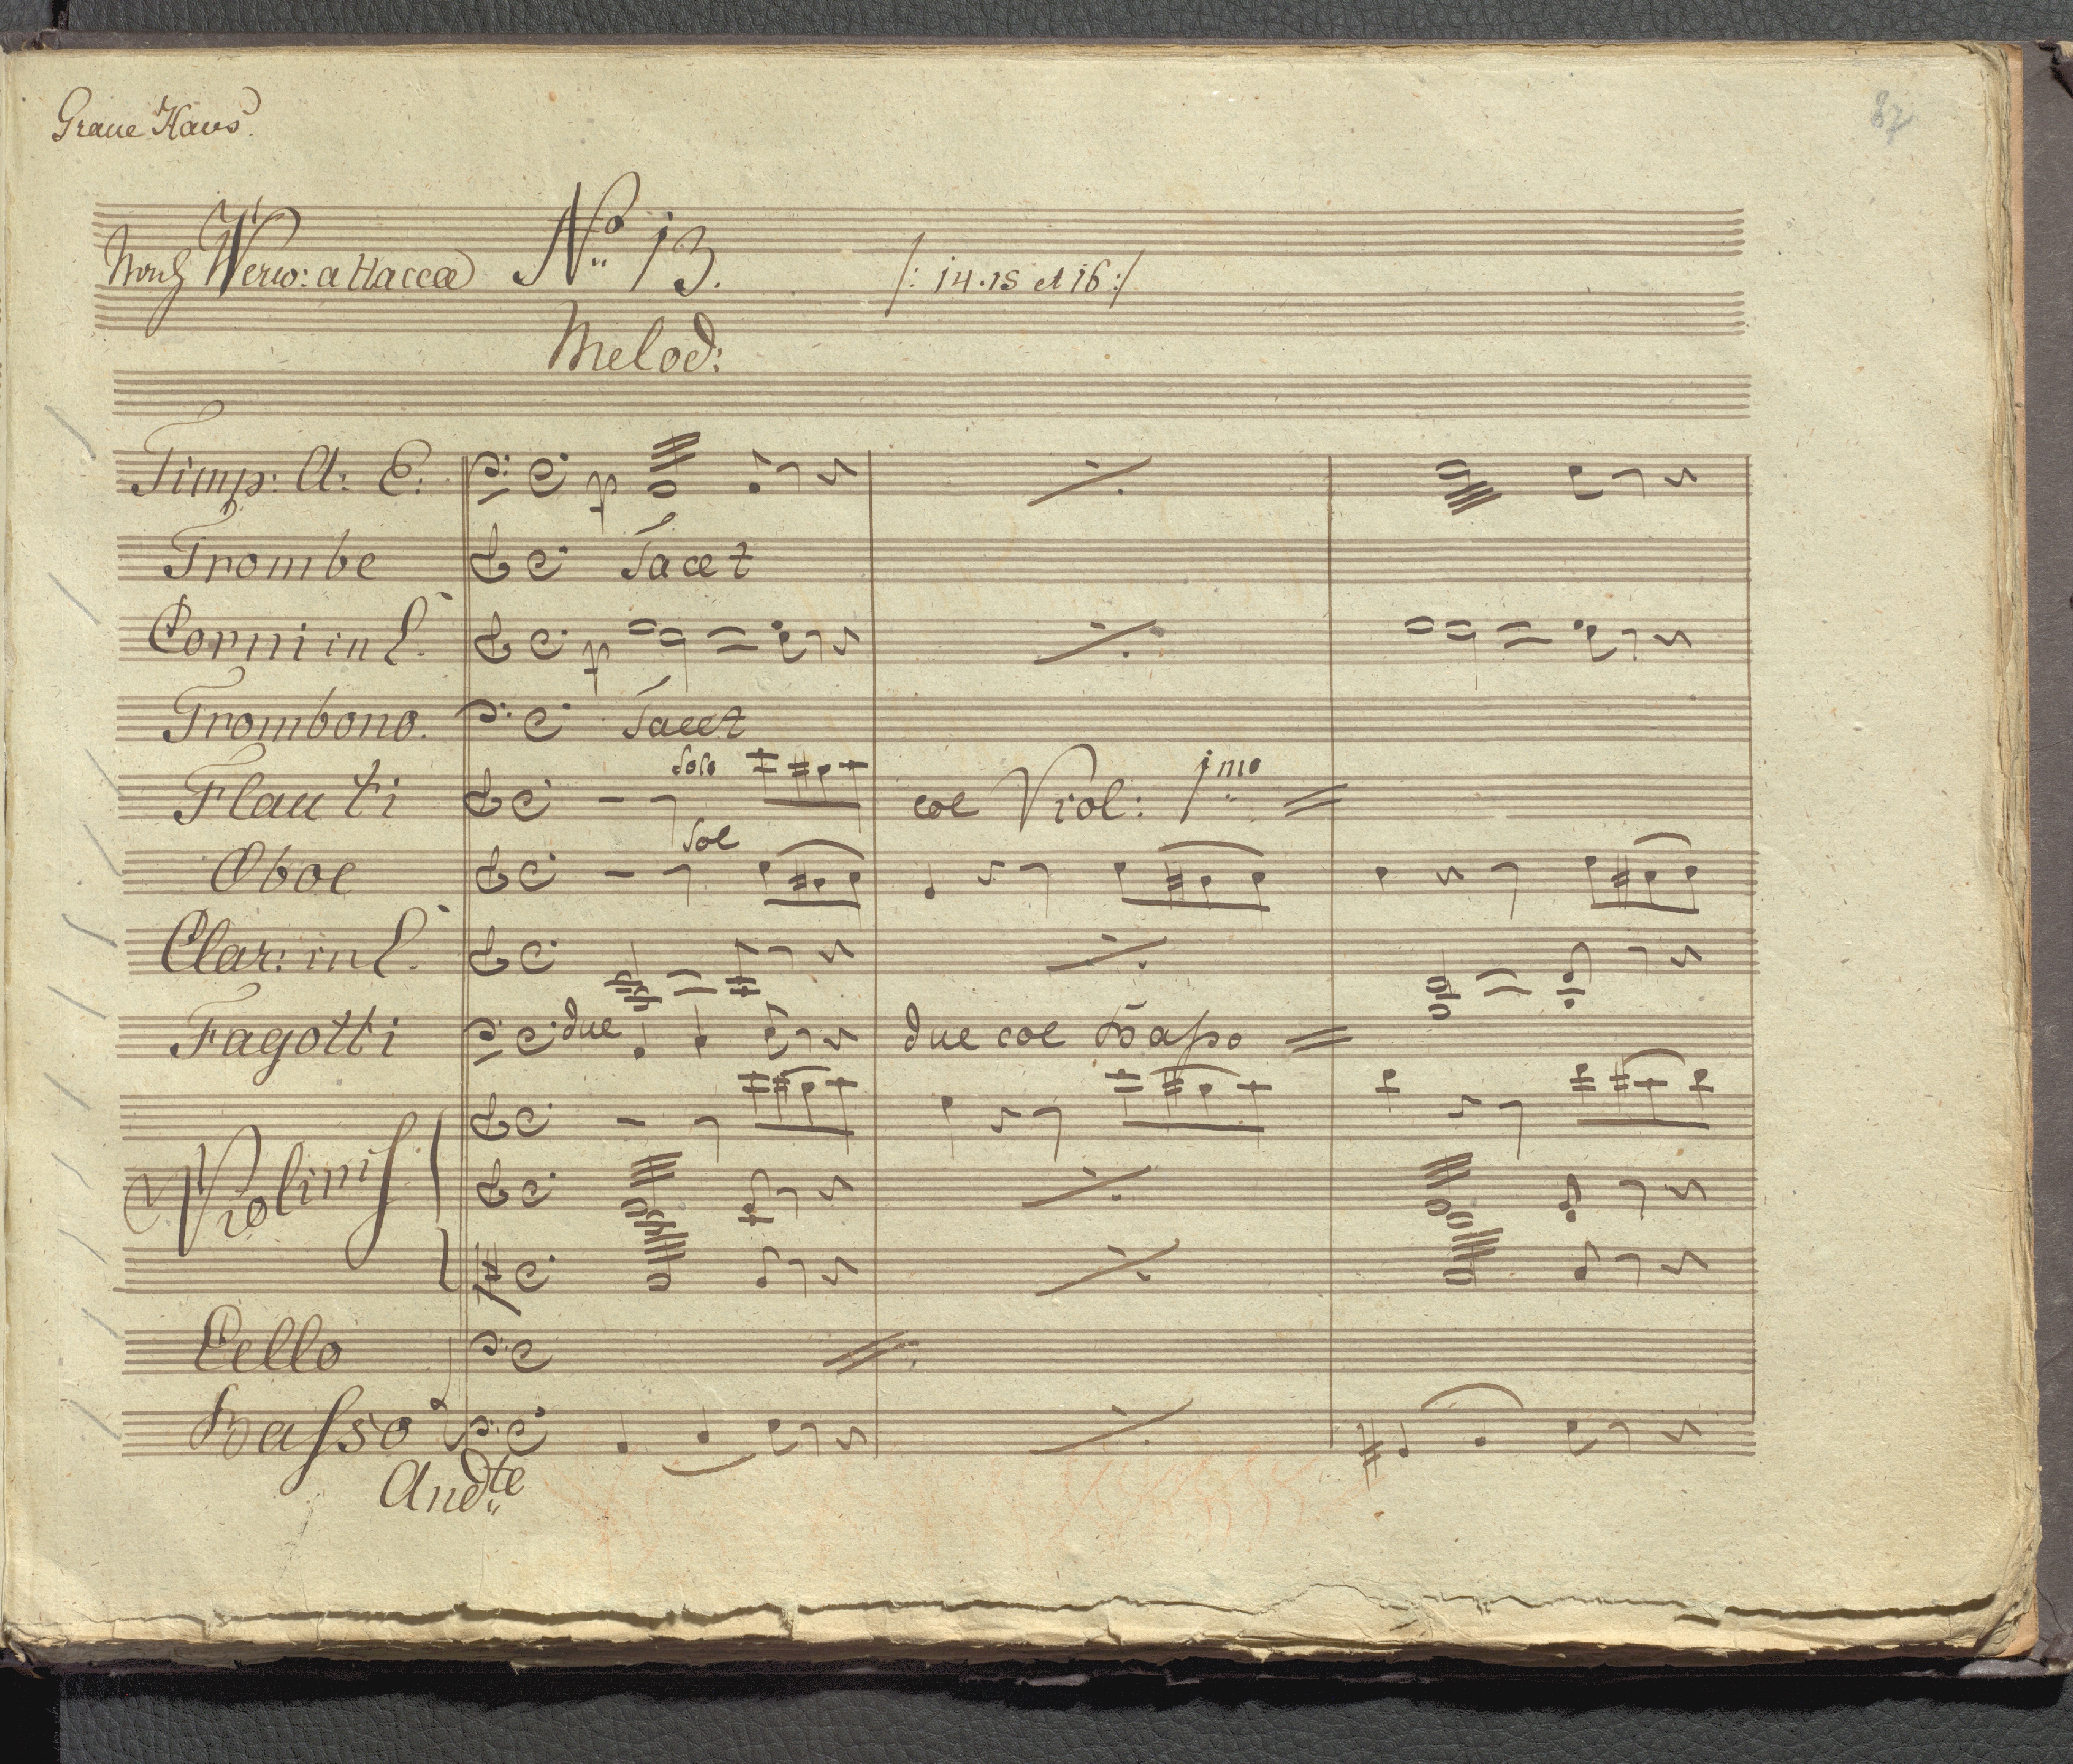 Graue Haus.
87
Nach Verw: attacca Nº 13. /: 14. 15 et 16 :/
Melod:
Timp: A: E. p
Trombe Tacet
Corni in E. p
Trombono. Tacet
Flauti Solo col Viol: 1mo
Oboe Sol
Clar: in C.
Fagotti due due col Basso
Violini
Cello
Basso
Andte